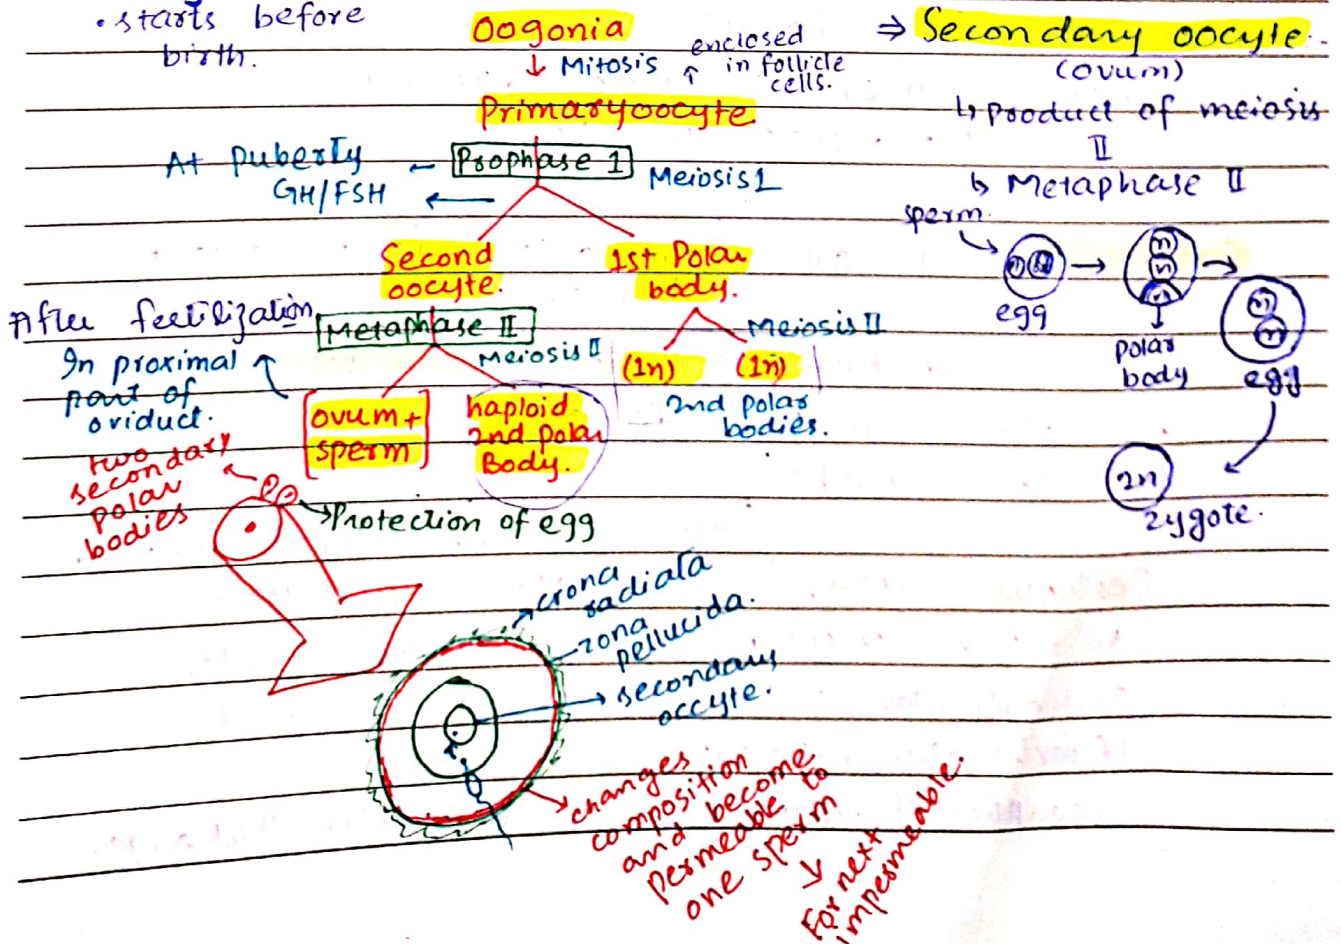 • starts before
birth.
Oogonia
↓ Mitosis
enclosed
↑ in follicle
cells.
Primaryoocyte
At puberty ← Prophase 1
Meiosis1
GH/FSH ←
Second
oocyte.
1st Polar
body.
After fertilization
Metaphase II
Meiosis II
Meiosis II
In proximal
part of
oviduct.
(1n) (1n)
2nd polar
bodies.
[ovum +
sperm]
haploid
2nd Polar
Body.
two
secondary
polar
bodies
→Protection of egg
crona
radiata
zona
pellucida.
secondary
occyte.
changes
composition
and become
permeable to
one sperm
↓
For next
impermeable.
⇒ Secondary oocyte.
(ovum)
↳ Product of meiosis
II
↳ Metaphase II
sperm.
egg
polar
body
egg
2n
zygote.